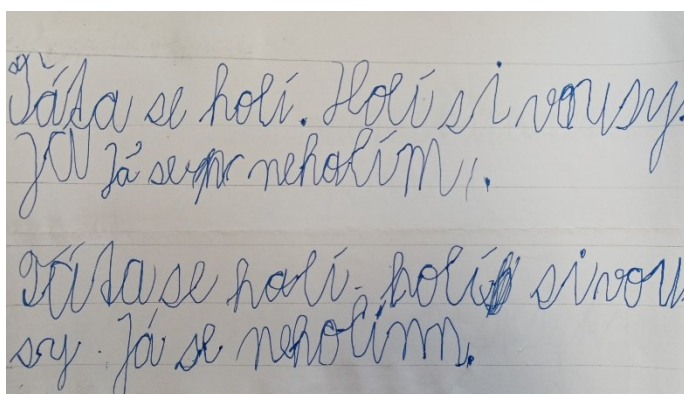 Táta se holí. Holí si vousy.
Já Já se neholím.
Táta se holí. holí si vou
sy. Já se neholím.